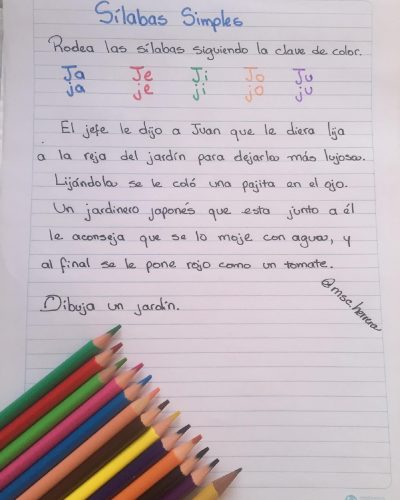 Sílabas Simples
Rodea las sílabas siguiendo la clave de color.
Ja Je Ji Jo Ju
ja je ji jo ju
El jefe le dijo a Juan que le diera lija
a la reja del jardín para dejarla más lujosa.
Lijándola se le coló una pajita en el ojo.
Un jardinero japonés que esta junto a él
le aconseja que se lo moje con agua, y
al final se le pone rojo como un tomate.
@mse.herrera
Dibuja un jardín.